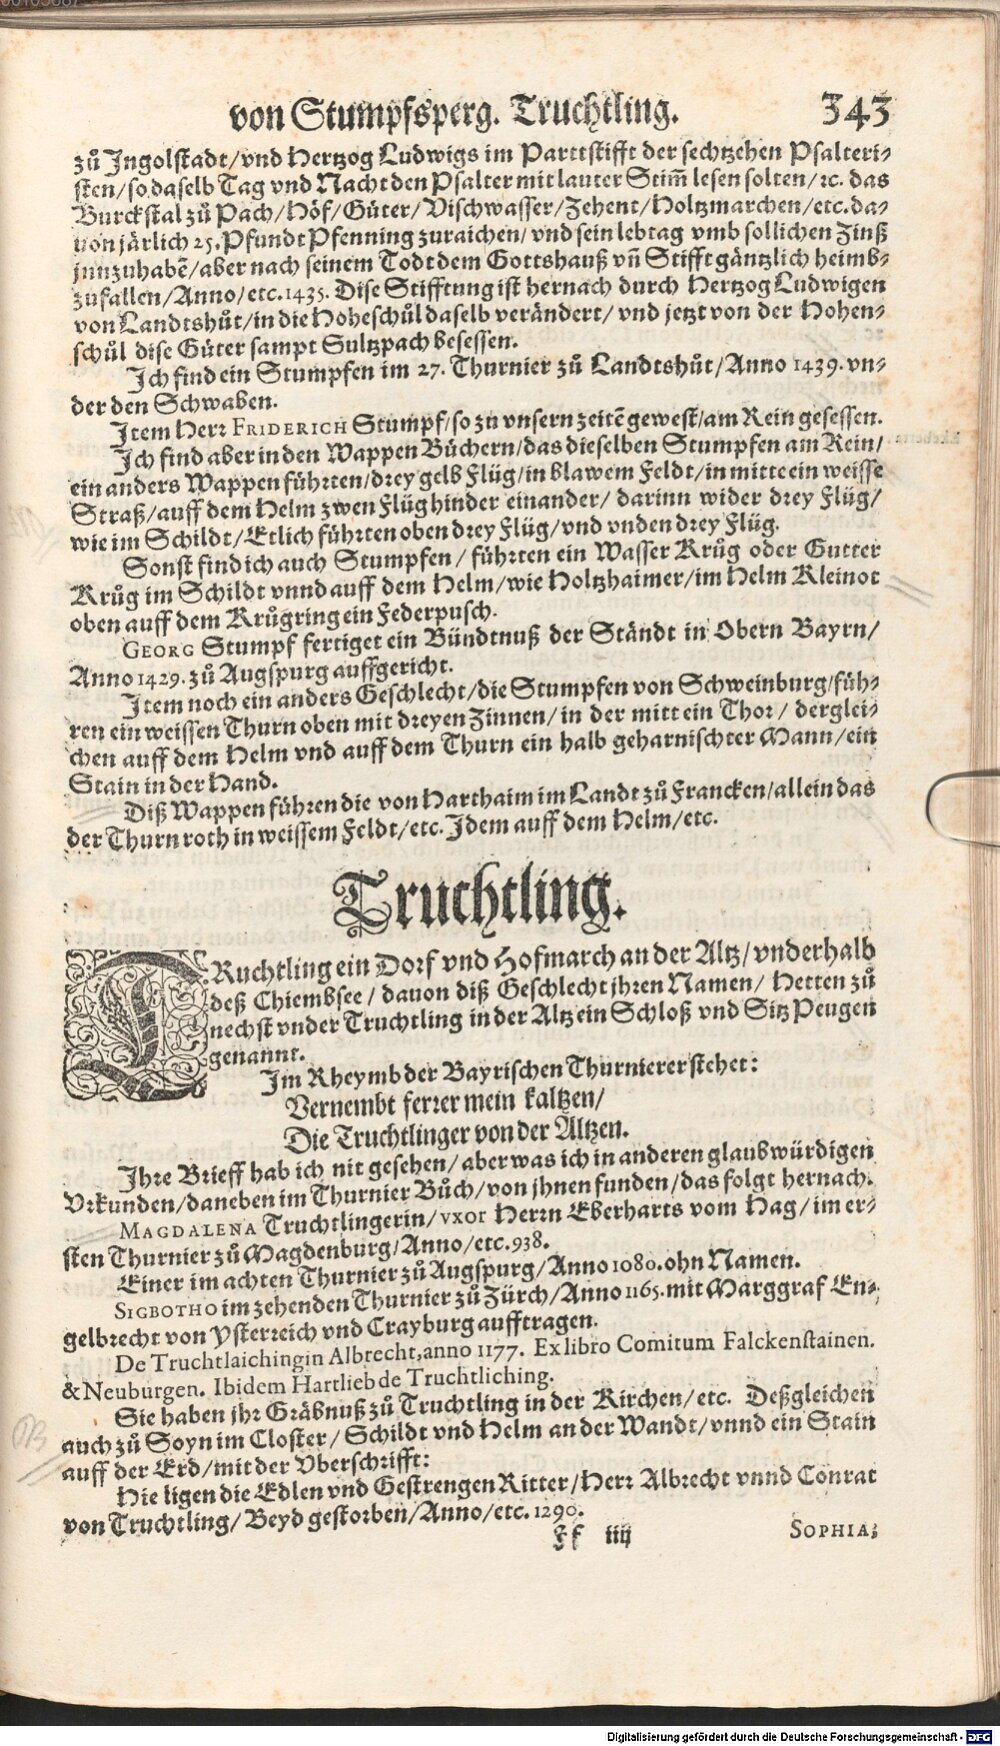 von Stumpfsperg. Truchtling. 343
zů Jngolstadt/vnd Hertzog Ludwigs im Parttstifft der sechtzehen Psalteri-
sten/so daselb Tag vnd Nacht den Psalter mit lauter Stim̃ lesen solten/ ꝛc. das
Burckstal zů Pach/Höf/Güter/Vischwasser/Zehent/Holtzmarchen/etc. da-
uon järlich 25. Pfundt Pfenning zuraichen/ vnd sein lebtag vmb sollichen Zinß
jnnzuhabẽ/aber nach seinem Todt dem Gottshauß vñ Stifft gäntzlich heimb-
zufallen/Anno/etc. 1435. Dise Stifftung ist hernach durch Hertzog Ludwigen
von Landtshůt/in die Hoheschůl daselb verändert/ vnd jetzt von der Hohen-
schůl dise Güter sampt Sultzpach besessen.
Jch find ein Stumpfen im 27. Thurnier zů Landtshůt/Anno 1439. vn-
der den Schwaben.
Jtem Herr FRIDERICH Stumpf/so zu vnsern zeitẽ gewest/am Rein gesessen.
Jch find aber in den Wappen Büchern/das dieselben Stumpfen am Rein/
ein anders Wappen führten/drey gelb Flüg/in blawem Feldt/in mitte ein weisse
Straß/auff dem Helm zwen Flüg hinder einander/ darinn wider drey Flüg/
wie im Schildt/Etlich führten oben drey Flüg/vnd vnden drey Flüg.
Sonst find ich auch Stumpfen / führten ein Wasser Krůg oder Gutter
Krůg im Schildt vnnd auff dem Helm/wie Holtzhaimer/im Helm Kleinot
oben auff dem Krůgring ein Federpusch.
GEORG Stumpf fertiget ein Bündtnuß der Ständt in Obern Bayrn/
Anno 1429. zů Augspurg auffgericht.
Jtem noch ein anders Geschlecht/die Stumpfen von Schweinburg/füh-
ren ein weissen Thurn oben mit dreyen Zinnen/ in der mitt ein Thor/ derglei-
chen auff dem Helm vnd auff dem Thurn ein halb geharnischter Mann/ein
Stain in der Hand.
Diß Wappen führen die von Harthaim im Landt zů Francken/allein das
der Thurn roth in weissem Feldt/etc. Jdem auff dem Helm/etc.
Truchtling.
TRuchtling ein Dorf vnd Hofmarch an der Altz/vnderhalb
deß Chiembsee/ dauon diß Geschlecht jhren Namen/ Hetten zů
nechst vnder Truchtling in der Altz ein Schloß vnd Sitz Peugen
genannt.
Jm Rheymb der Bayrischen Thurnierer stehet:
Vernembt ferrer mein kaltzen/
Die Truchtlinger von der Altzen.
Jhre Brieff hab ich nit gesehen/ aber was ich in anderen glaubwürdigen
Vrkunden/daneben im Thurnier Bůch/von jhnen funden/das folgt hernach.
MAGDALENA Truchtlingerin/vxor Herrn Eberharts vom Hag/im er-
sten Thurnier zů Magdenburg/Anno/etc. 938.
Einer im achten Thurnier zů Augspurg/Anno 1080. ohn Namen.
SIGBOTHO im zehenden Thurnier zů Zürch/Anno 1165. mit Marggraf En-
gelbrecht von Ysterreich vnd Crayburg aufftragen.
De Truchtlaichingin Albrecht, anno 1177. Ex libro Comitum Falckenstainen.
& Neuburgen. Ibidem Hartlieb de Truchtliching.
Sie haben jhr Gräbnuß zů Truchtling in der Kirchen/etc. Deßgleichen
auch zů Soyn im Closter/ Schildt vnd Helm an der Wandt/vnnd ein Stain
auff der Erd/mit der Vberschrifft:
Hie ligen die Edlen vnd Gestrengen Ritter/Herr Albrecht vnnd Conrat
von Truchtling/ Beyd gestorben/Anno/etc. 1290.
Ff iiij SOPHIA;
Digitalisierung gefördert durch die Deutsche Forschungsgemeinschaft - DFG